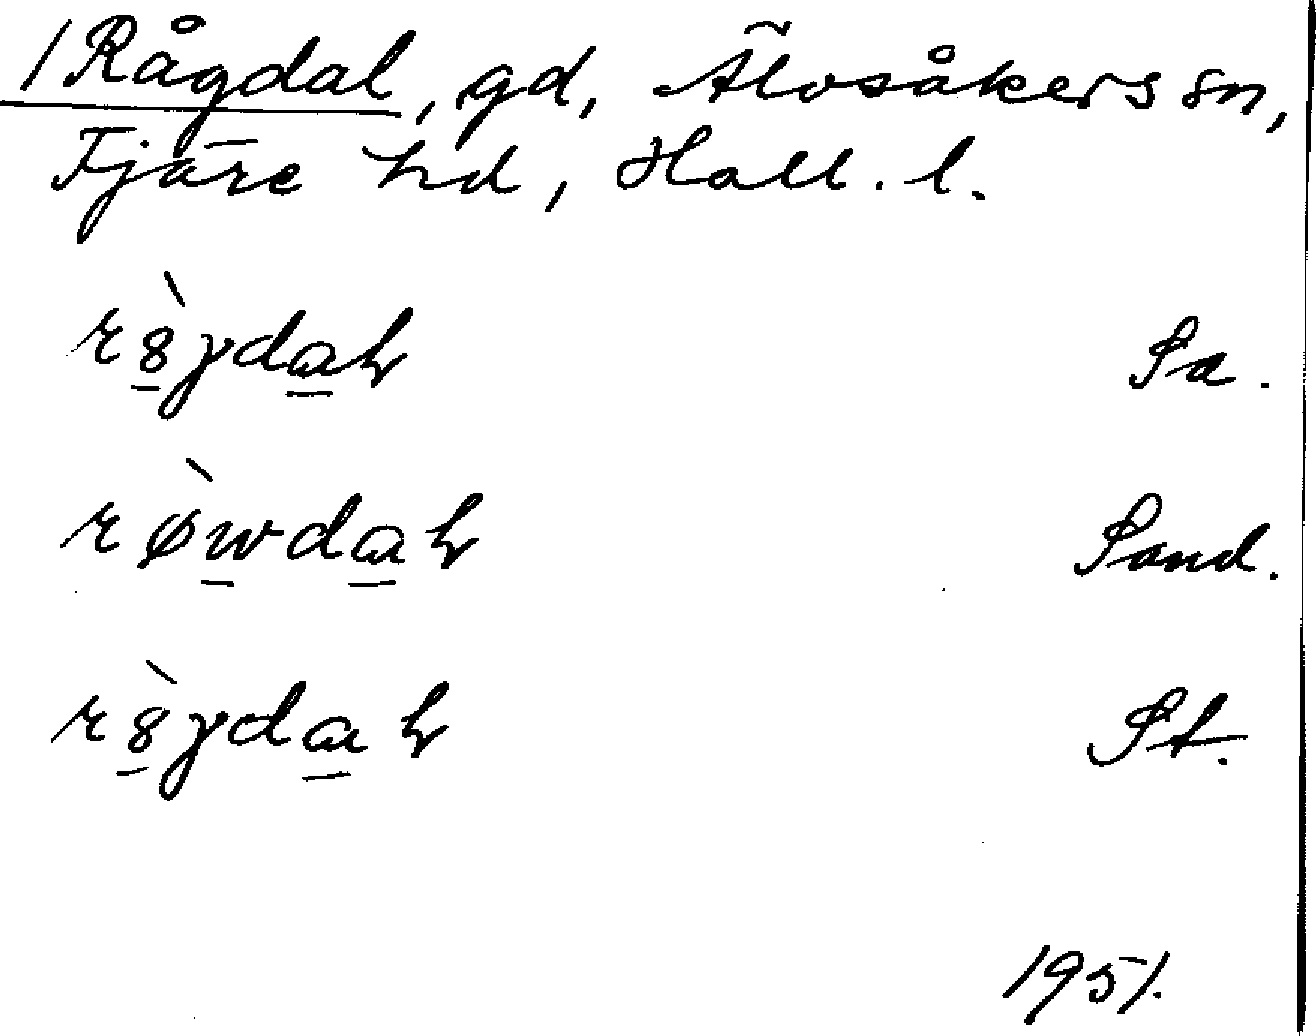 /Rågdal, gd, Älvsåkers sn,
Fjäre hd, Hall. l.
r8̲̀γda̲ɫ Sa.
rø̀w̲da̲ɫ Sand.
r8̲̀γda̲ɫ St.
1951.